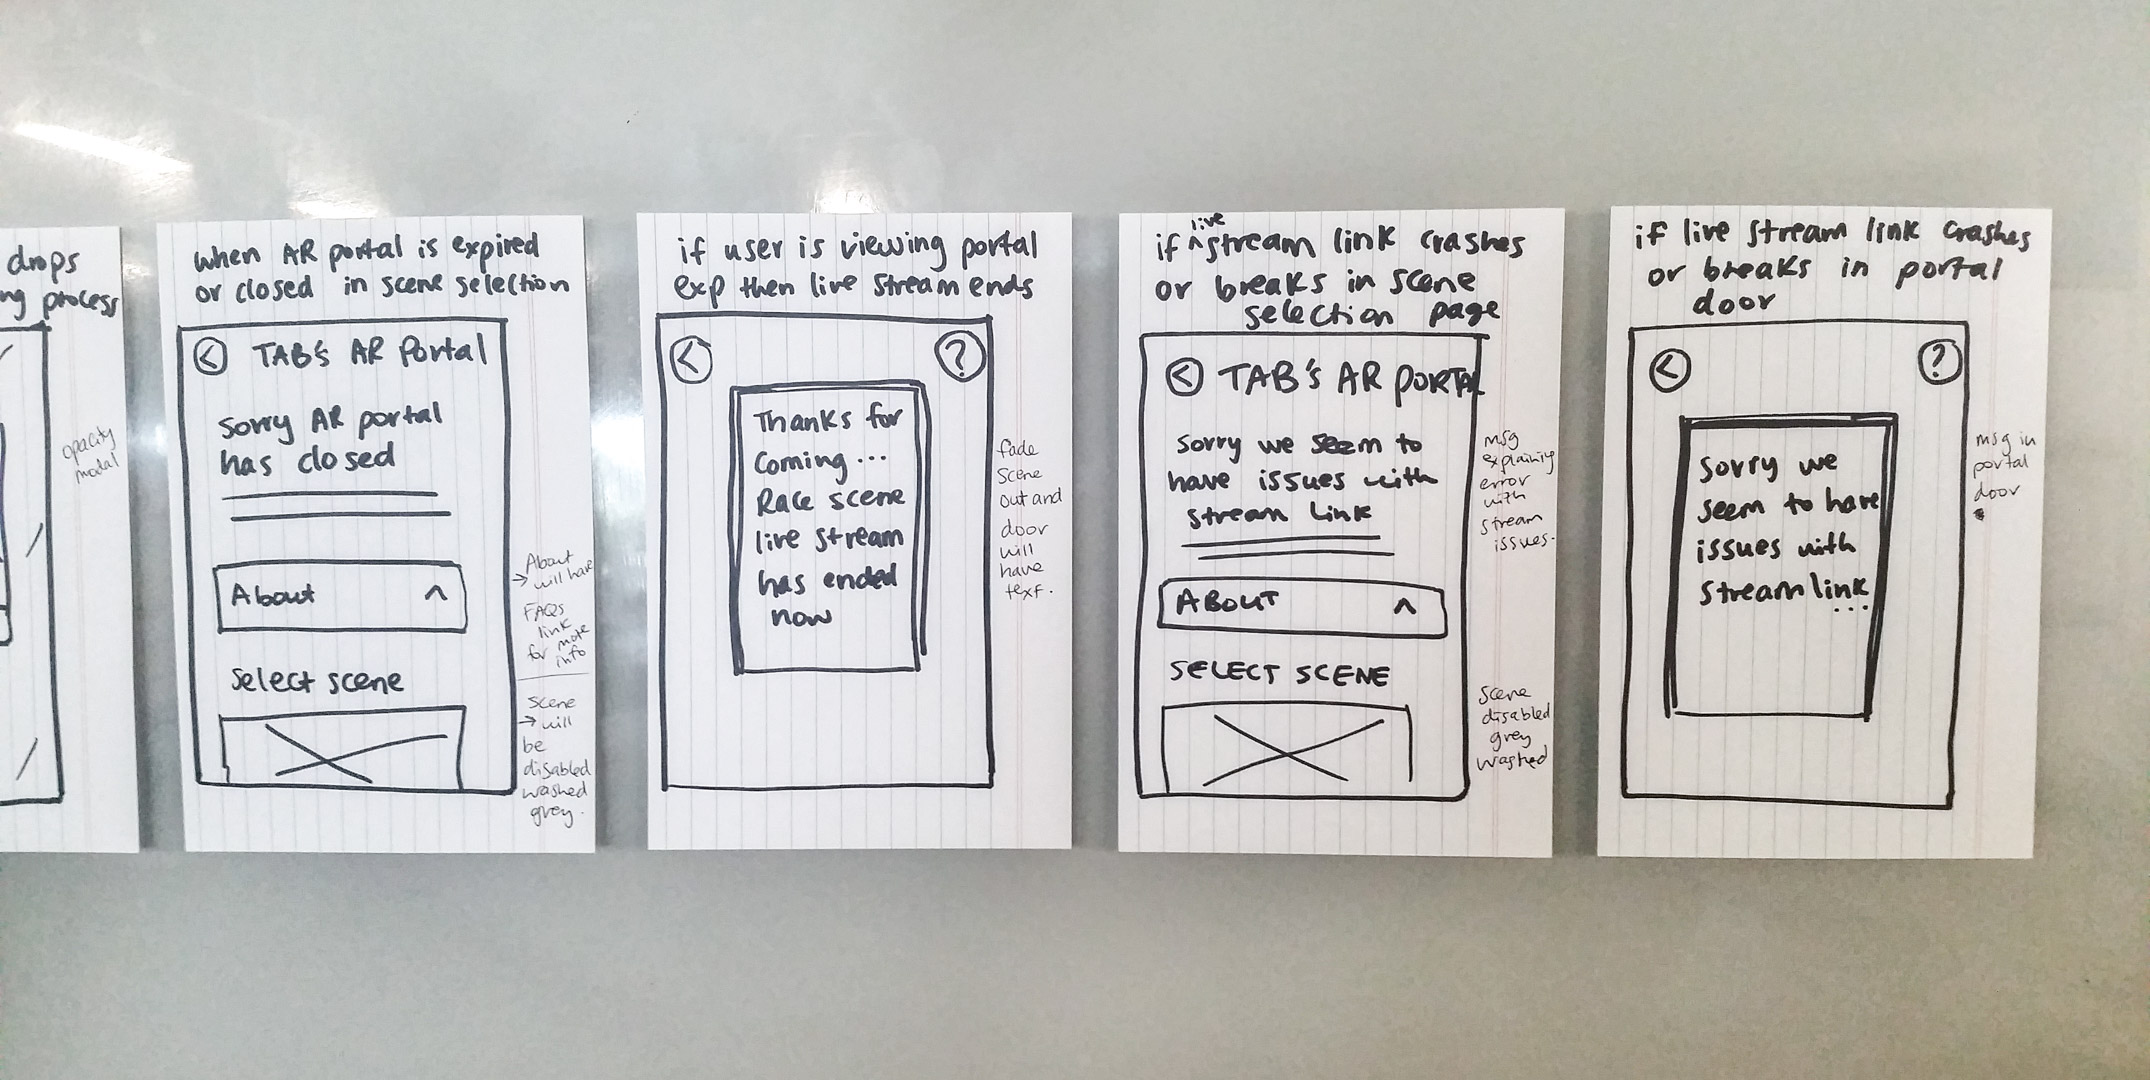 drops
ng process
opacity
modal
when AR portal is expired
or closed in scene selection
< TAB'S AR Portal
Sorry AR portal
has closed
About ^
Select scene
About
→ will have
FAQs
link
for more
info
scene
→ will
be
disabled
washed
grey.
if user is viewing portal
exp then live stream ends
< ?
Thanks for
Coming ...
Race scene
live stream
has ended
now
fade
scene
out and
door
will
have
text.
live
if ^ stream link crashes
or breaks in scene
selection page
< TAB'S AR PORTAL
Sorry we seem to
have issues with
stream link
ABOUT ^
SELECT SCENE
msg
explaining
error
with
stream
issues.
Scene
disabled
grey
washed
if live stream link crashes
or breaks in portal
door
< ?
Sorry we
seem to have
issues with
stream link
...
msg in
portal
door